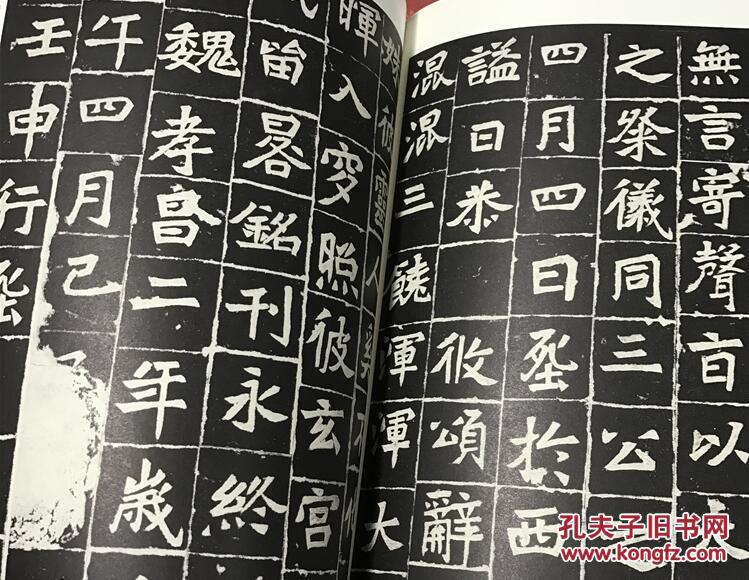 無言寄聲百以
之祭儀同三公
四月四日於西
謚曰恭 攸頌辭
混混三饒渾渾大
彼靈人
暉入穸照彼玄宮
留畧銘刊永終
魏孝昌二年歲
午四月己
壬申行
孔夫子旧书网
www.kongfz.com